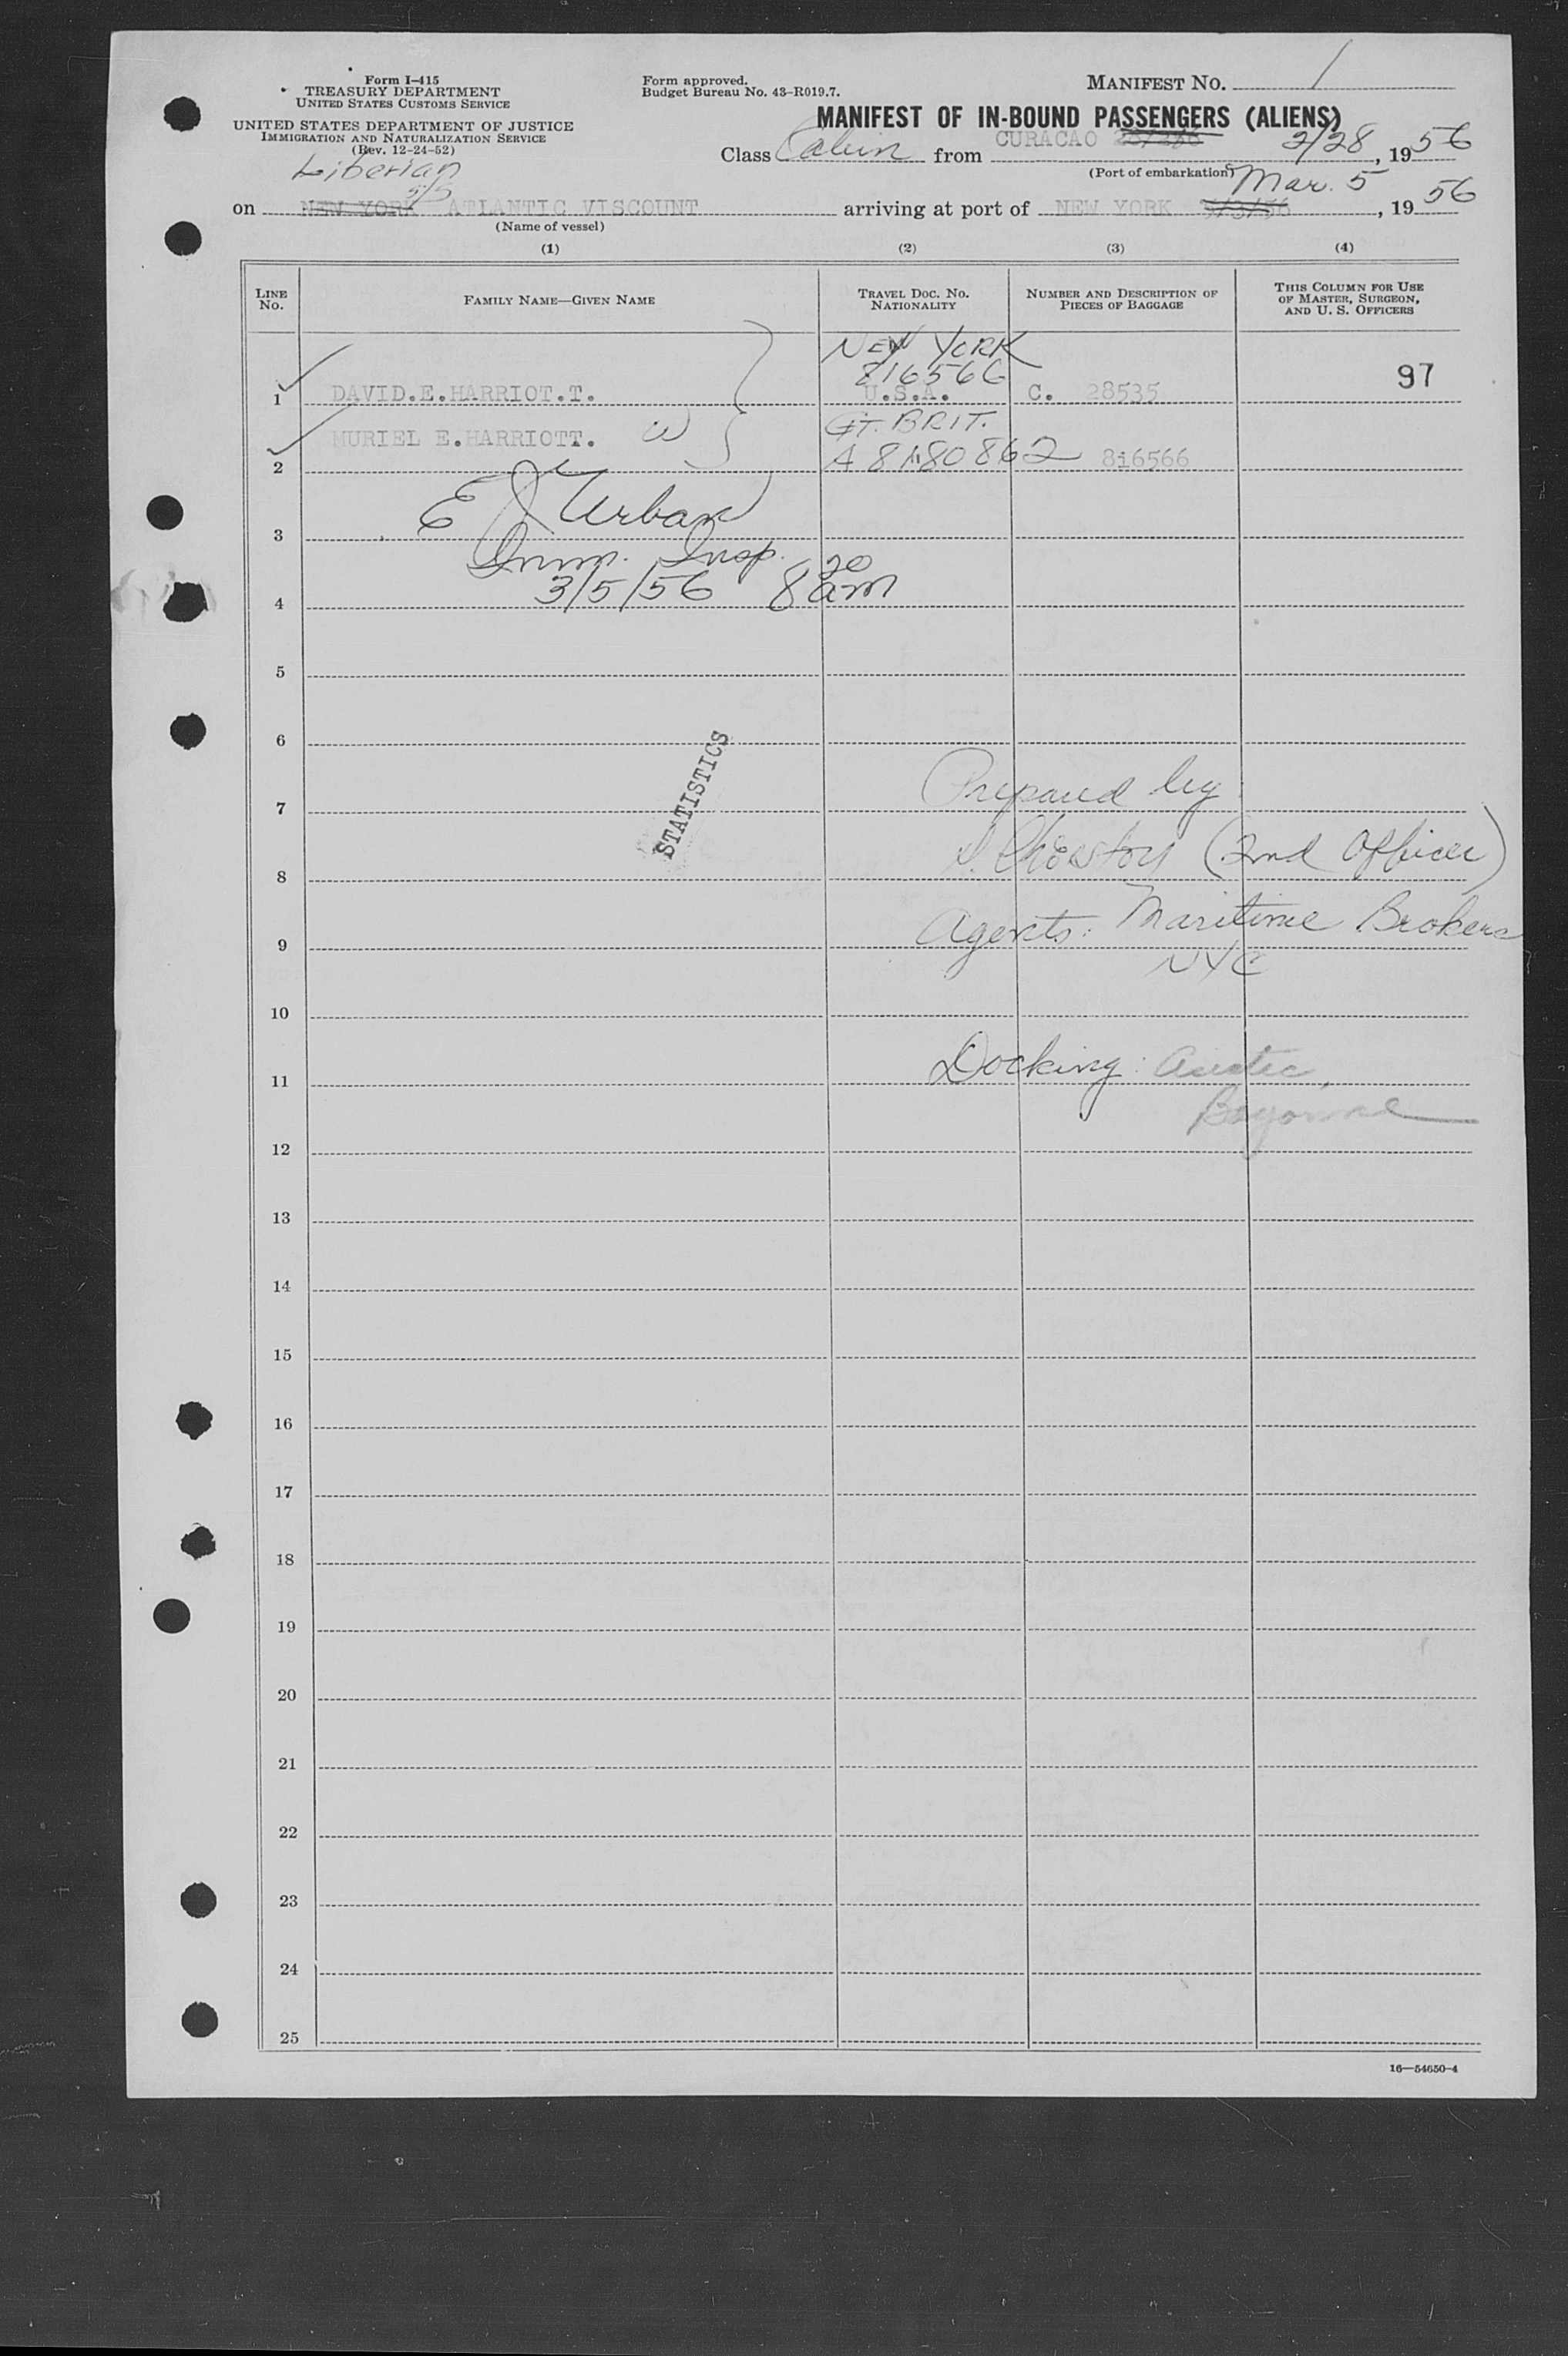 Form I-415
TREASURY DEPARTMENT
UNITED STATES CUSTOMS SERVICE
UNITED STATES DEPARTMENT OF JUSTICE
IMMIGRATION AND NATURALIZATION SERVICE
(Rev. 12-24-52)
Form approved.
Budget Bureau No. 43-R019.7.
MANIFEST NO. 1
MANIFEST OF IN-BOUND PASSENGERS (ALIENS)
Class Cabin from CURACAO 2/28, 1956
(Port of embarkation)
Liberian
S/S
on NEW YORK ATLANTIC VISCOUNT arriving at port of NEW YORK 3/3/56 Mar. 5, 1956
(Name of vessel)
(1) (2) (3) (4)
LINE NO.
FAMILY NAME—GIVEN NAME
TRAVEL DOC. NO. NATIONALITY
NUMBER AND DESCRIPTION OF PIECES OF BAGGAGE
THIS COLUMN FOR USE OF MASTER, SURGEON, AND U. S. OFFICERS
NEW YORK
816566
1 DAVID.E.HARRIOT.T. U.S.A. C. 28535 97
MURIEL E.HARRIOTT. W GT. BRIT.
2 A 8 180 862 816566
E J Urban
3
Imm. Insp.
4 3/5/56 8 20 am
5
6
STATISTICS
7 Prepared by:
8 (2nd Officer)
9 Agents: Maritime Brokers
NYC
10
11 Docking: Asiatic,
Bayonne
12
13
14
15
16
17
18
19
20
21
22
23
24
25
16—54650-4